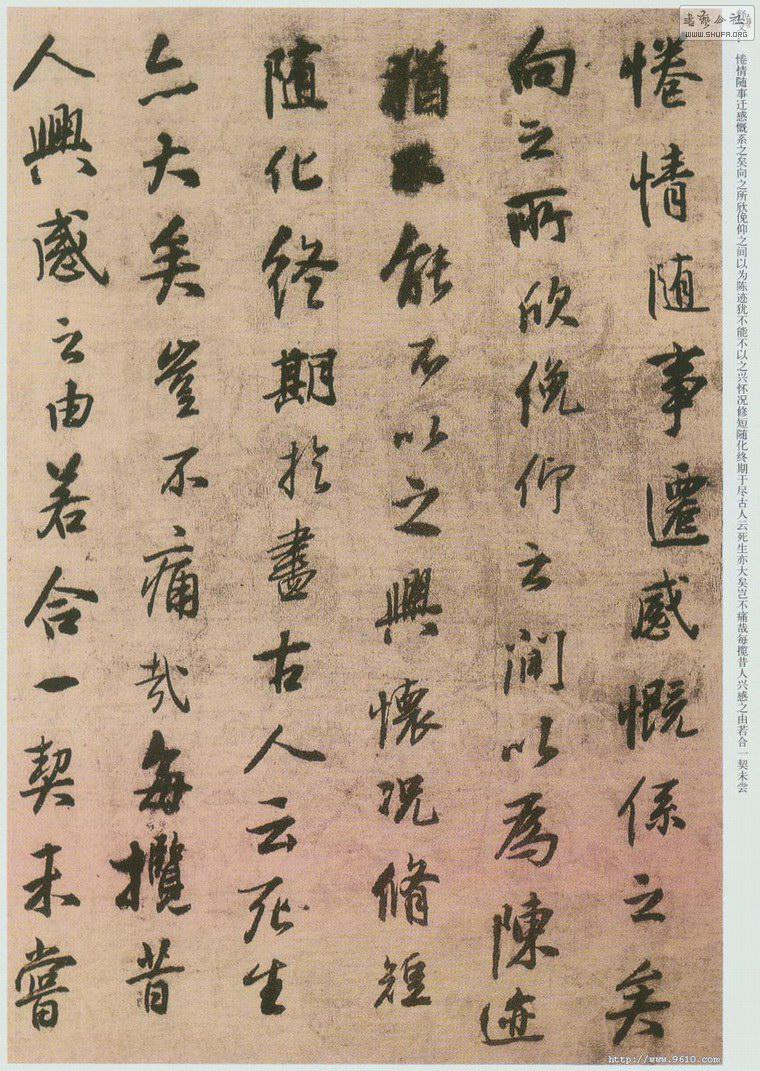 惓情随事遷感慨係之矣
向之所欣俛仰之間以為陳迹
猶不能不以之興懷況脩短
随化終期於盡古人云死生
亦大矣豈不痛哉每攬昔
人興感之由若合一契未嘗
惓情随事迁感慨系之矣向之所欣俛仰之间以为陈迹犹不能不以之兴怀况修短随化终期于尽古人云死生亦大矣岂不痛哉每揽昔人兴感之由若合一契未尝
WWW.SHUFA.ORG
http://www.9610.com/